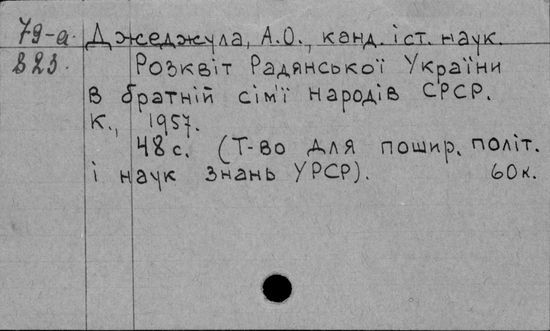 79-а Джеджула, А.О., канд. іст. наук.
В23. Розквіт Радянської України
в братній сім'ї народів СРСР.
К., 1957.
48 с. (Т-во для пошир. політ.
і наук знань УРСР). 60к.